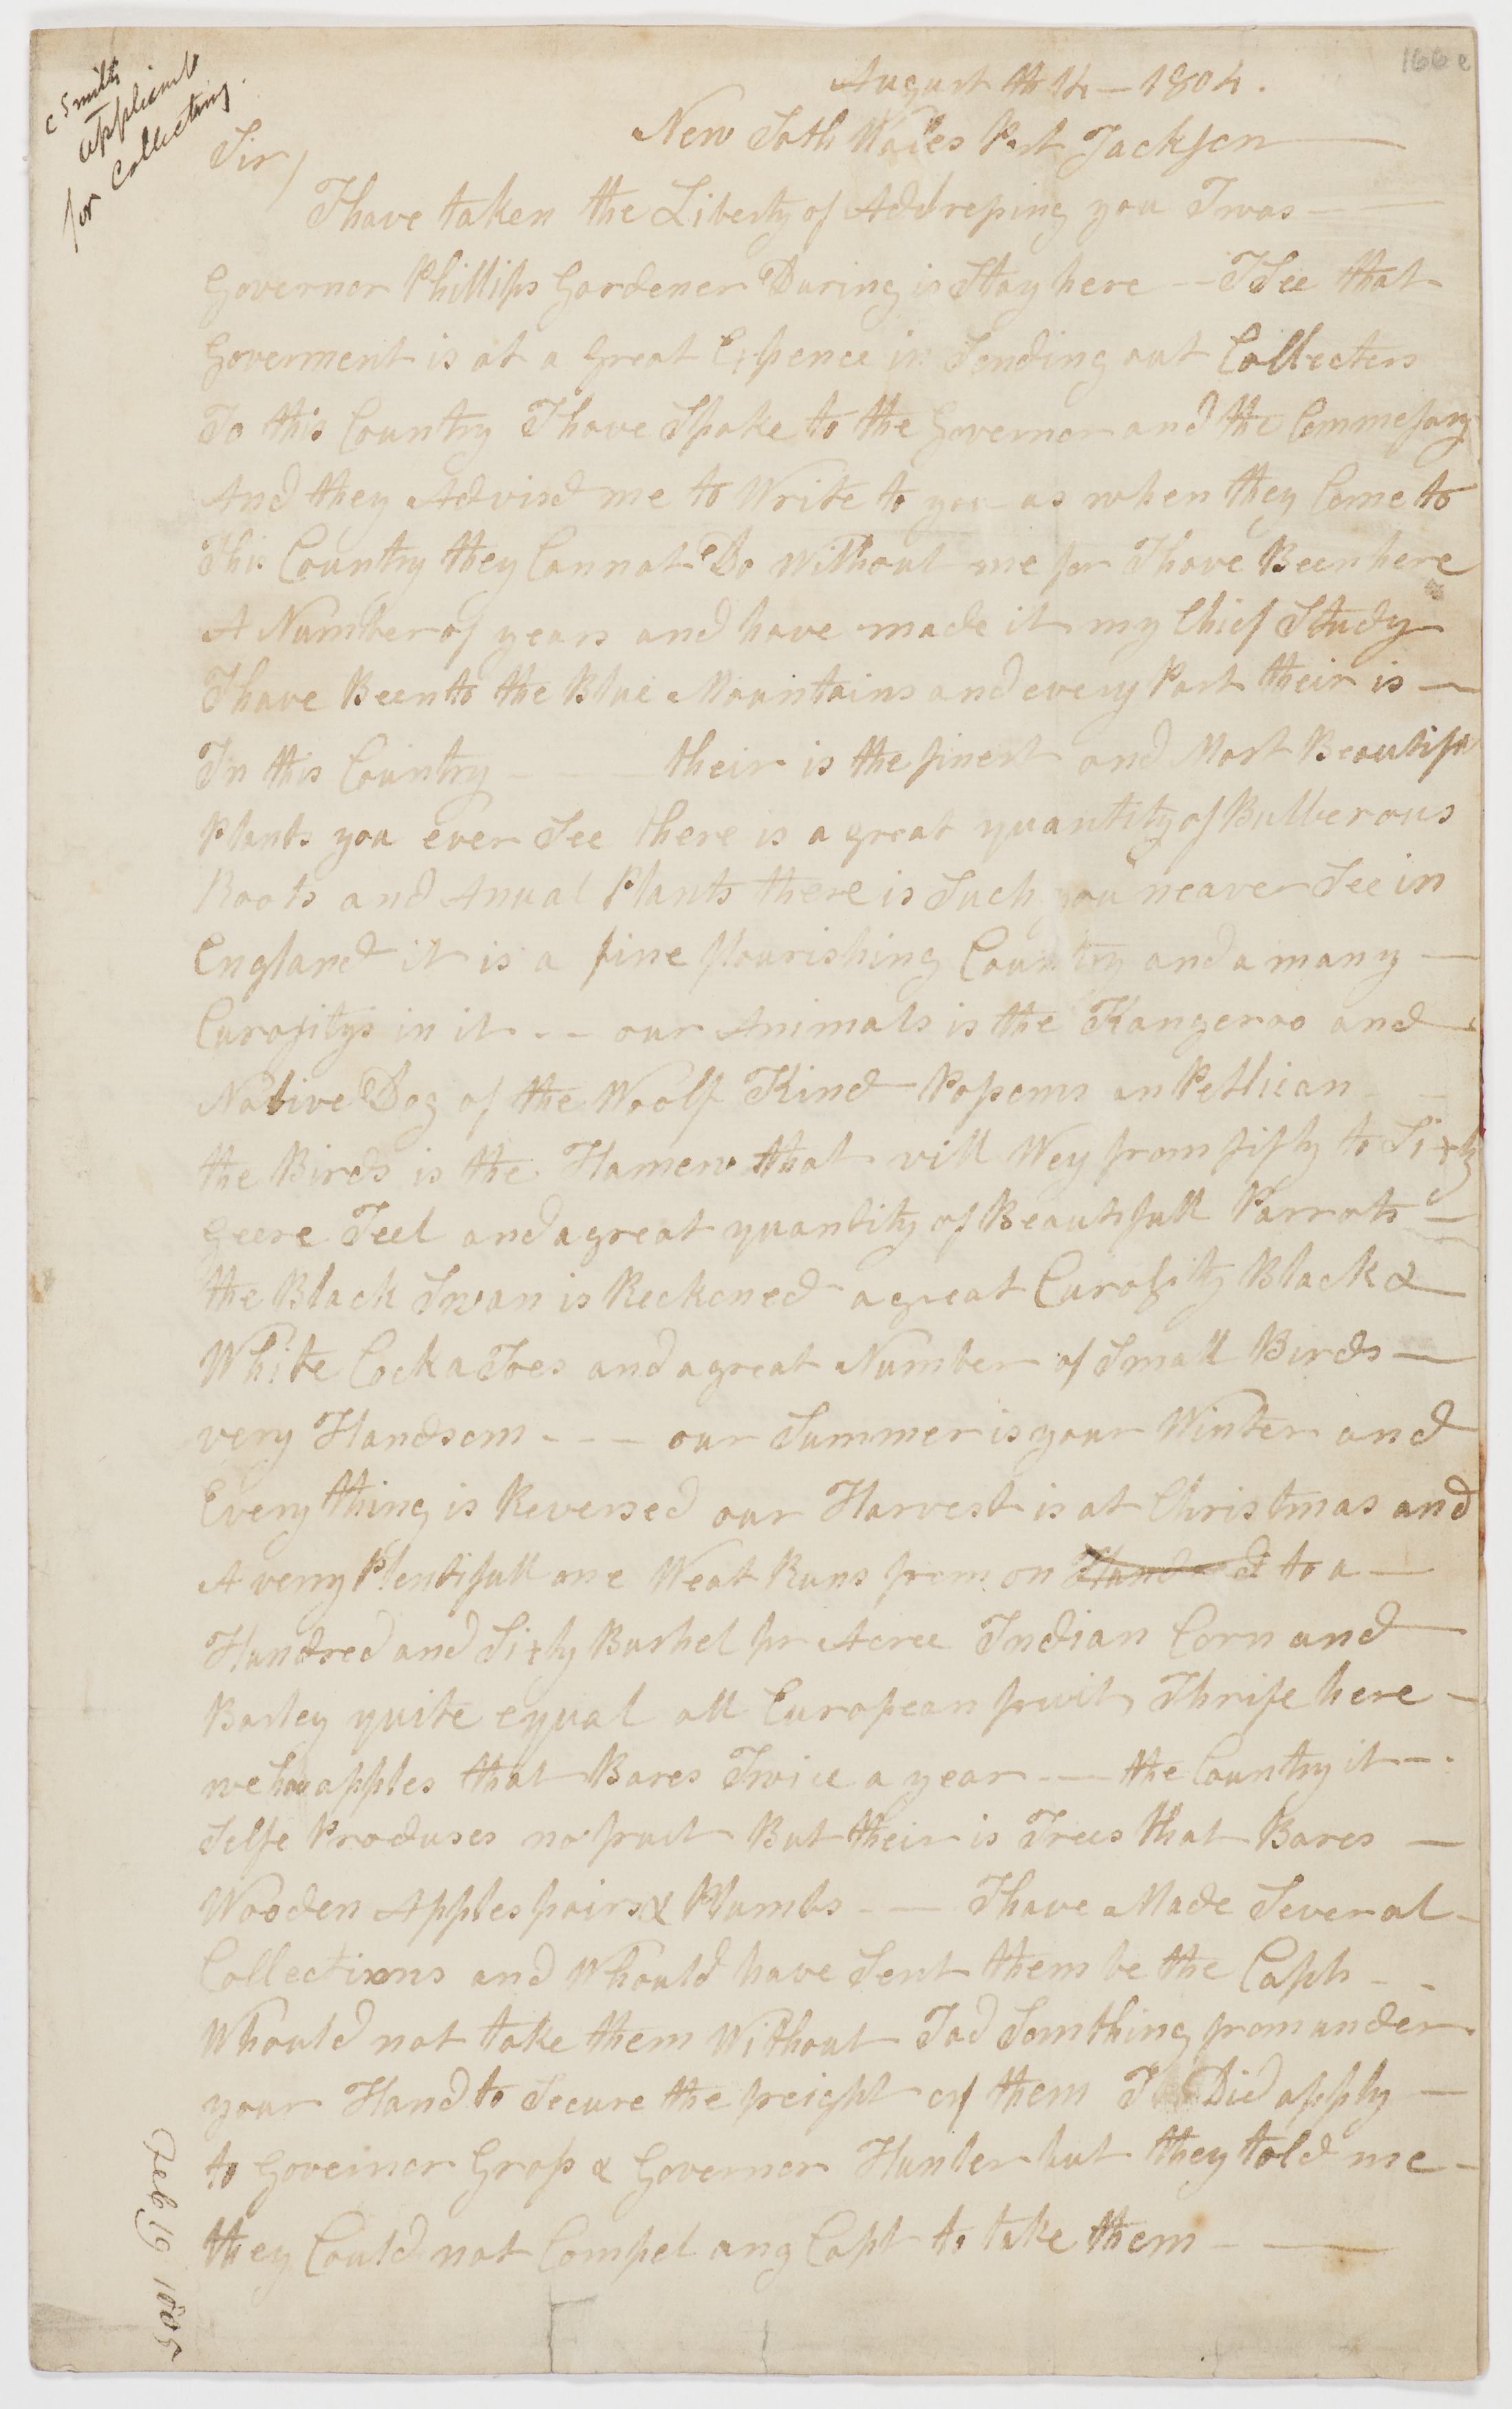 C Smith
applicant
for Collecting.
166 e
August th 14 – 1804.
New Soth Wales Port Jackson
Sir/
I have taken the Liberty of Addressing you I was
Governor Phillips Gardener During is Stay here – I See that
Goverment is at a Great Expence in Sending out Collecters
To this Country I have Spoke to the Governor and the Commesary
And they Advisd me to Write to you as when they Come to
This Country they Cannot Do Without me for I have Been here
A Number of years and have made it my Chief Study
I have Been to the Blue Mountains and every Part their is –
In this Country – – – their is the finest and Most Beautifu
Plants you ever See there is a great quantity of Bulberous
Roots and Anual Plants there is Such you neaver See in
England it is a fine flourishing Country and a many –
Curositys in it – – our Animals is the Kangeroo and
Native Dog of the Woolf Kind Possoms an Pellican
the Birds is the Hamew that will Wey from fifty to Sixty
Geese Teel and a great quantity of Beautifull Parrots –
the Black Swan is Reckoned a great Curosity Black &
White Cock a Toes and a great Number of Small Birds –
very Handsom – – – our Summer is your Winter and
Every thing is Reversed our Harvest is at Christmas and
A verry Plentifull one Weat Runs from on Hundred to a –
Hundred and Sixty Bushel pr Acree Indian Corn and
Barley quite equal all European fruits Thrife here –
we hav apples that Bares Twice a year – – the Country it – .
Selfe Produses no fruit But their is Trees that Bares –
Wooden Apples pairs & Plumbs – – I have Made Several
Collections and Whould have Sent them be the Capts – –
Whould not take them Without I ad Somthing from under
your Hand to Secure the freight of them I Did apply –
to Goveinor Gross & Governor Hunter but they told me –
they Could not Compel any Capt to take them – –
Feb 19 1805